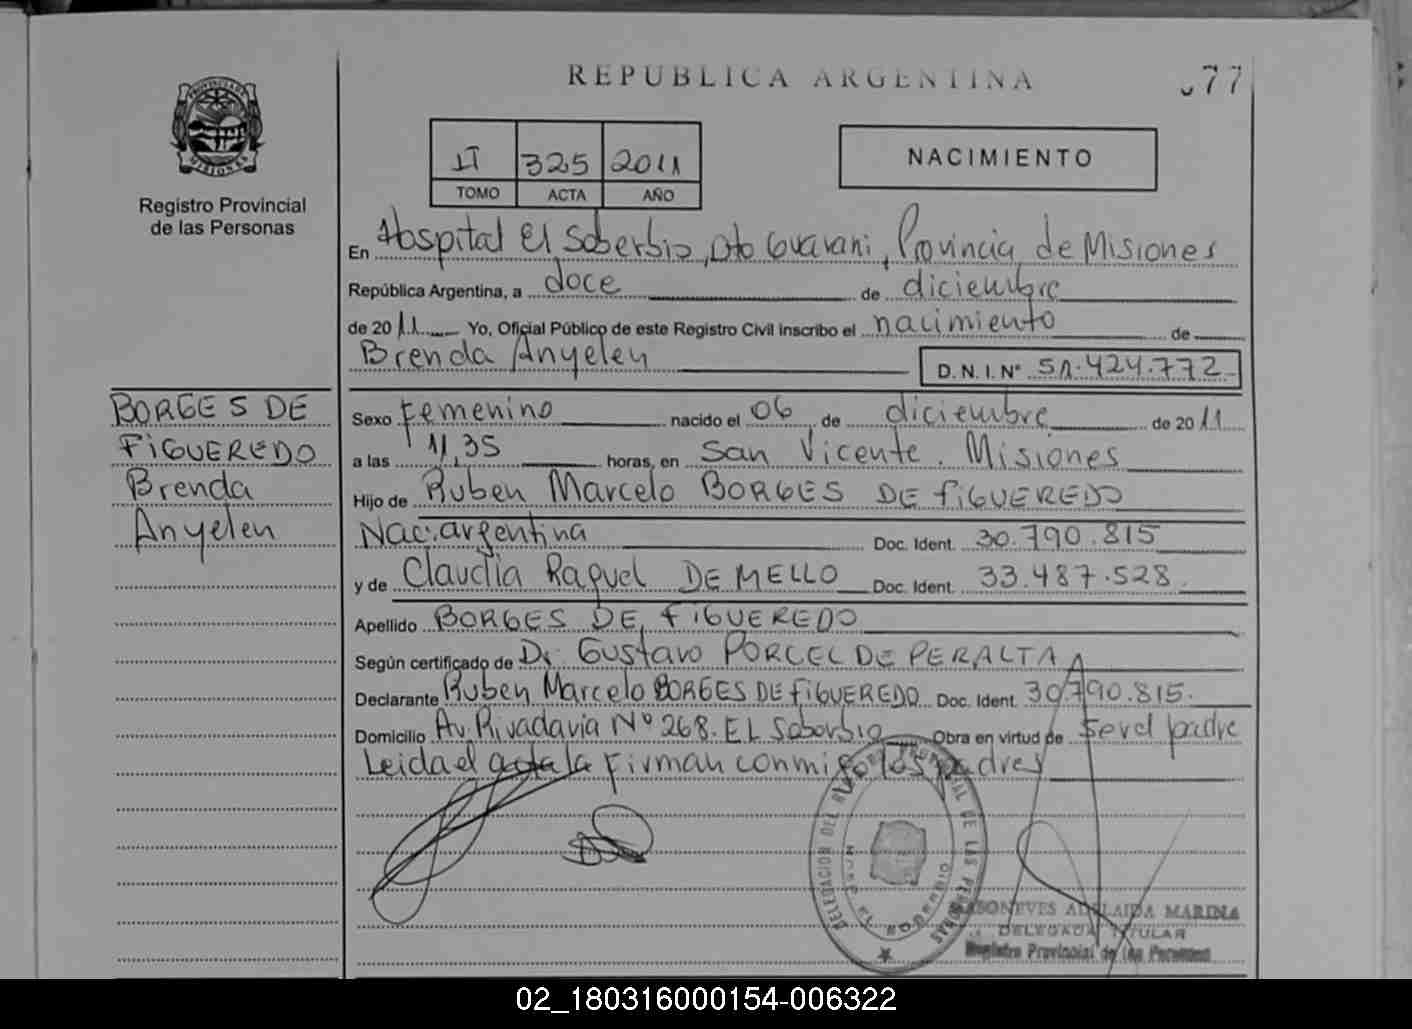 REPUBLICA ARGENTINA
77
PROVINCIA DE MISIONES
Registro Provincial
de las Personas
II 325 2011
TOMO ACTA AÑO
NACIMIENTO
En Hospital El Soberbio, Dto Guarani, Provincia de Misiones
República Argentina, a doce de diciembre
de 2011 Yo, Oficial Público de este Registro Civil inscribo el nacimiento de
Brenda Anyelen D. N. I. Nº 51.424.772
BORGES DE
FIGUEREDO
Brenda
Anyelen
Sexo Femenino nacido el 06 de diciembre de 2011
a las 11,35 horas, en San Vicente. Misiones
Hijo de Ruben Marcelo BORGES DE FIGUEREDO
Nac: argentina Doc. Ident. 30.790.815
y de Claudia Raquel DE MELLO Doc. Ident. 33.487.528
Apellido BORGES DE FIGUEREDO
Según certificado de Dr. Gustavo PORCEL DE PERALTA
Declarante Ruben Marcelo BORGES DE FIGUEREDO Doc. Ident. 30.790.815.
Domicilio Av. Rivadavia Nº 268. EL Soberbio Obra en virtud de Ser el padre
Leida el acta la firman conmigo los padres
DELEGACION DEL REGISTRO PROVINCIAL DE LAS PERSONAS
EL SOBERBIO
ADELAIDA MARINA
DELEGADA TITULAR
Registro Provincial de las Personas
02_180316000154-006322